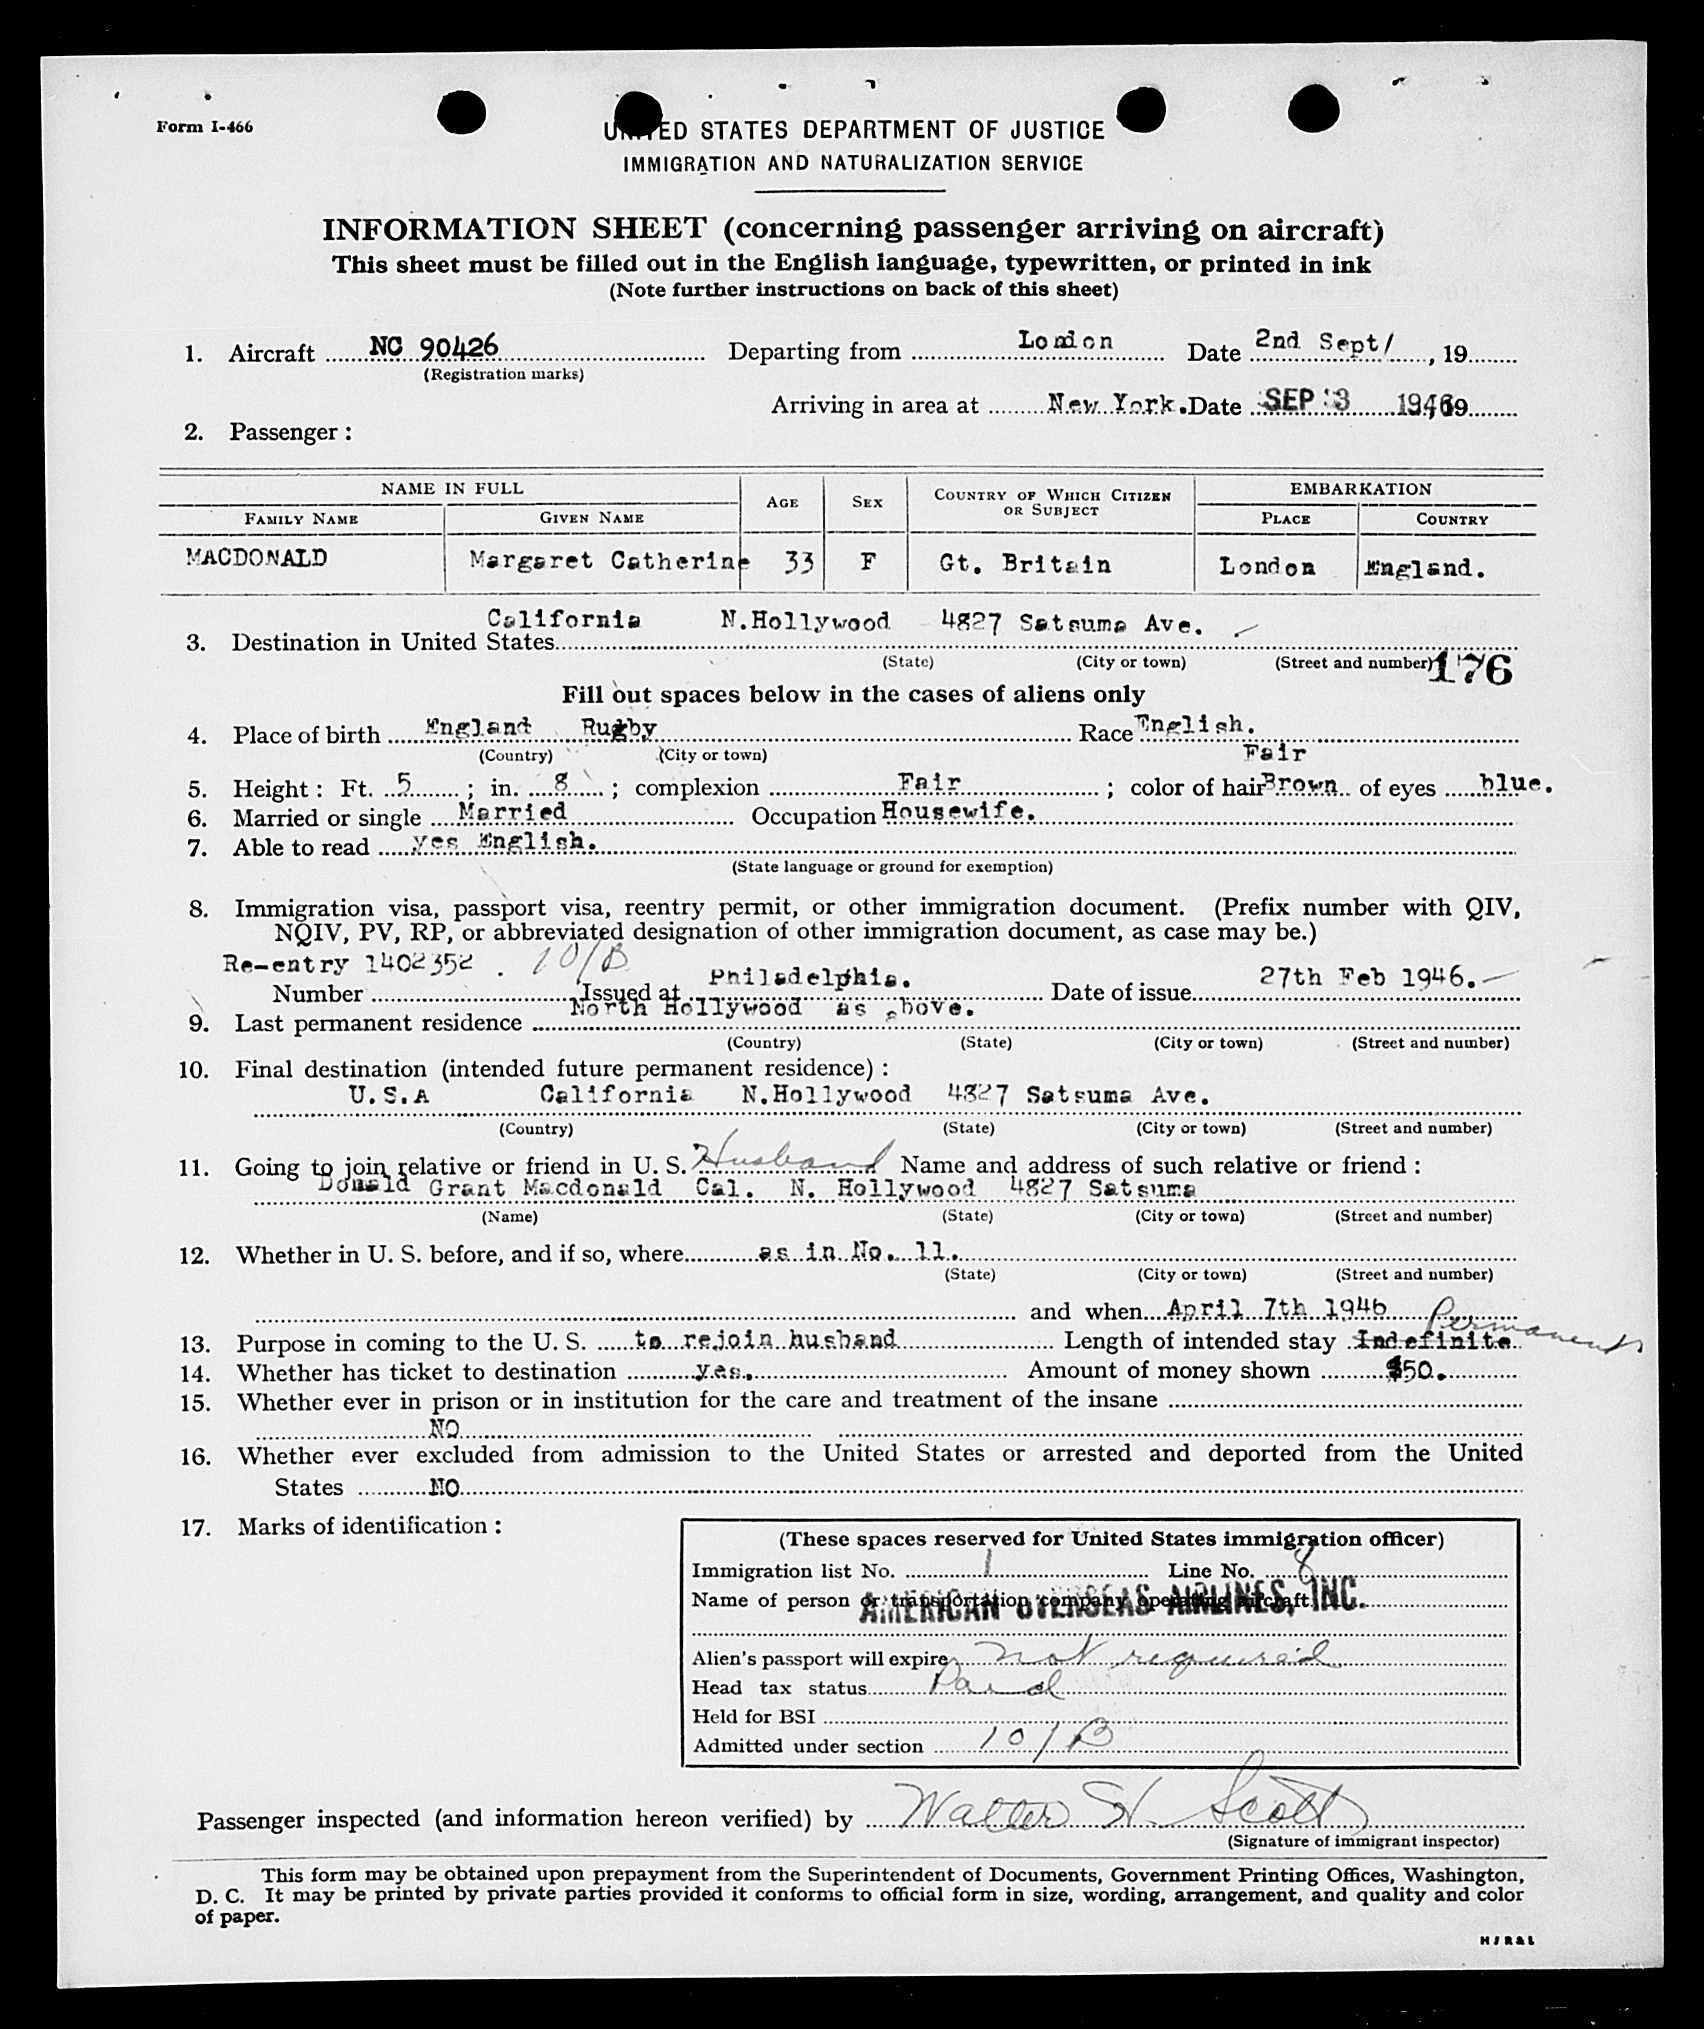 Form I-466
UNITED STATES DEPARTMENT OF JUSTICE
IMMIGRATION AND NATURALIZATION SERVICE
INFORMATION SHEET (concerning passenger arriving on aircraft)
This sheet must be filled out in the English language, typewritten, or printed in ink
(Note further instructions on back of this sheet)
1. Aircraft NC 90426 Departing from London Date 2nd Sept/, 19
(Registration marks)
Arriving in area at New York. Date SEP 3 1946, 19
2. Passenger:
NAME IN FULL AGE SEX COUNTRY OF WHICH CITIZEN OR SUBJECT EMBARKATION
FAMILY NAME GIVEN NAME PLACE COUNTRY
MACDONALD Margaret Catherine 33 F Gt. Britain London England.
California N.Hollywood 4827 Satsuma Ave.
3. Destination in United States
(State) (City or town) (Street and number) 176
Fill out spaces below in the cases of aliens only
4. Place of birth England Rugby Race English.
(Country) (City or town) Fair
5. Height: Ft. 5; in. 8; complexion Fair; color of hair Brown of eyes blue.
6. Married or single Married Occupation Housewife.
7. Able to read yes English.
(State language or ground for exemption)
8. Immigration visa, passport visa, reentry permit, or other immigration document. (Prefix number with QIV,
NQIV, PV, RP, or abbreviated designation of other immigration document, as case may be.)
Re-entry 1402352. 10/B
Number Issued at Philadelphia. Date of issue 27th Feb 1946.
9. Last permanent residence North Hollywood as above.
(Country) (State) (City or town) (Street and number)
10. Final destination (intended future permanent residence):
U.S.A California N.Hollywood 4827 Satsuma Ave.
(Country) (State) (City or town) (Street and number)
11. Going to join relative or friend in U. S. Husband Name and address of such relative or friend:
Donald Grant Macdonald Cal. N. Hollywood 4827 Satsuma
(Name) (State) (City or town) (Street and number)
12. Whether in U. S. before, and if so, where as in No. 11.
(State) (City or town) (Street and number)
and when April 7th 1946 Permanent
13. Purpose in coming to the U. S. to rejoin husband Length of intended stay Indefinite
14. Whether has ticket to destination yes. Amount of money shown $50.
15. Whether ever in prison or in institution for the care and treatment of the insane
NO
16. Whether ever excluded from admission to the United States or arrested and deported from the United
States NO
17. Marks of identification:
(These spaces reserved for United States immigration officer)
Immigration list No. 1 Line No. 8
Name of person or transportation company operating aircraft AMERICAN OVERSEAS AIRLINES, INC.
Alien's passport will expire not required
Head tax status Paid
Held for BSI
Admitted under section 10/B
Passenger inspected (and information hereon verified) by Walter H. Scott
(Signature of immigrant inspector)
This form may be obtained upon prepayment from the Superintendent of Documents, Government Printing Offices, Washington,
D. C. It may be printed by private parties provided it conforms to official form in size, wording, arrangement, and quality and color
of paper.
H/R&L